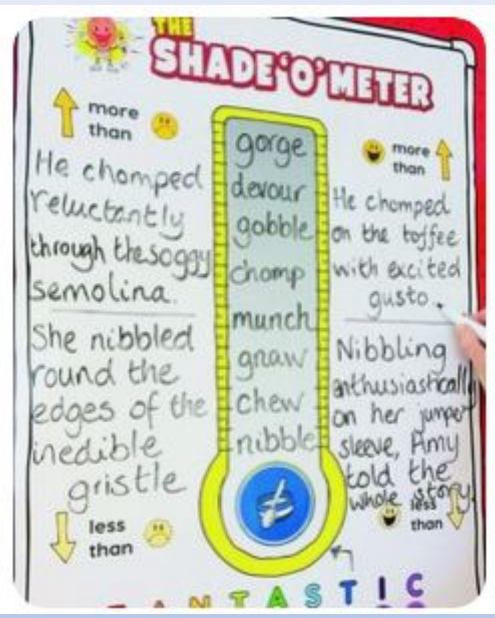 THE
SHADE'O'METER
more
than
He chomped
reluctantly
through the soggy
semolina.
She nibbled
round the
edges of the
inedible
gristle
less
than
gorge
devour
gobble
chomp
munch
gnaw
chew
nibble
more
than
He chomped
on the toffee
with excited
gusto.
Nibbling
enthusiastically
on her jumper
sleeve, Amy
told the
whole story
less
than
FANTASTIC